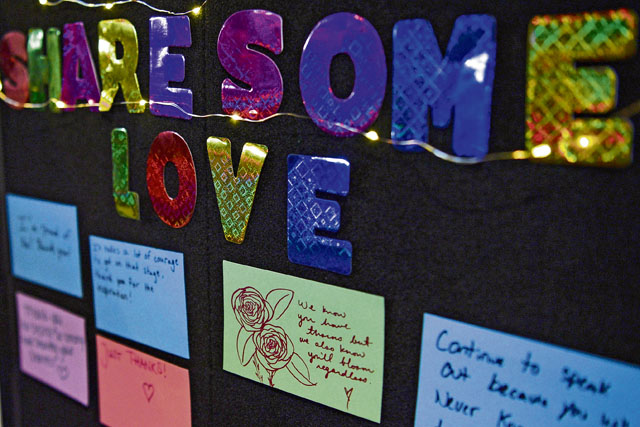 SHARE SOME
LOVE
I'm proud of
you! Thank you!
It takes a lot of courage
to get on that stage,
thank you for the
inspiration!
Thank you
JUST THANKS!
We know
you have
thorns but
we also know
you'll bloom
regardless.
Continue to speak
out because you
Never Know